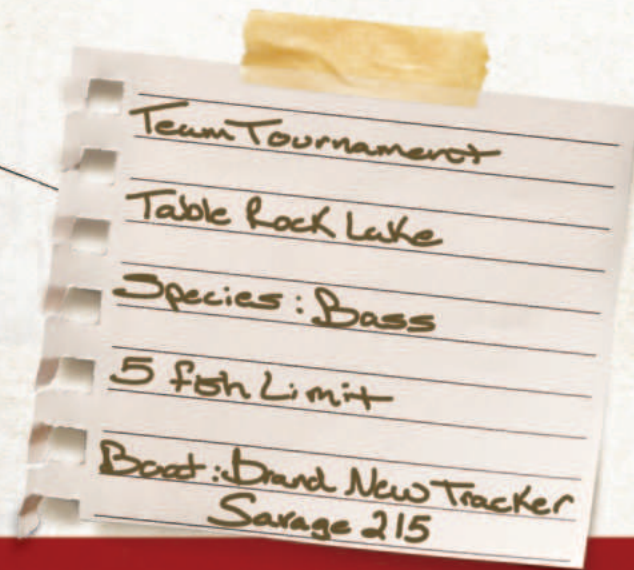 Team Tournament
Table Rock Lake
Species: Bass
5 fish Limit
Boat: Brand New Tracker
Savage 215